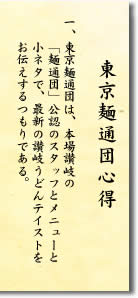 東京麺通団心得
一、東京麺通団は、本場讃岐の
「麺通団」公認のスタッフとメニューと
小ネタで、最新の讃岐うどんテイストを
お伝えするつもりである。